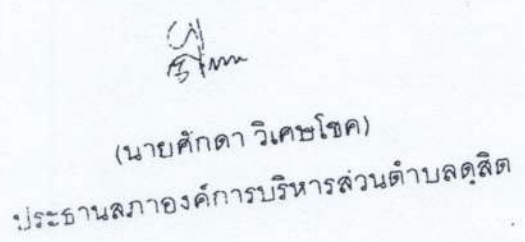 (นายศักดา วิเศษโชค)
ประธานสภาองค์การบริหารส่วนตำบลดุสิต